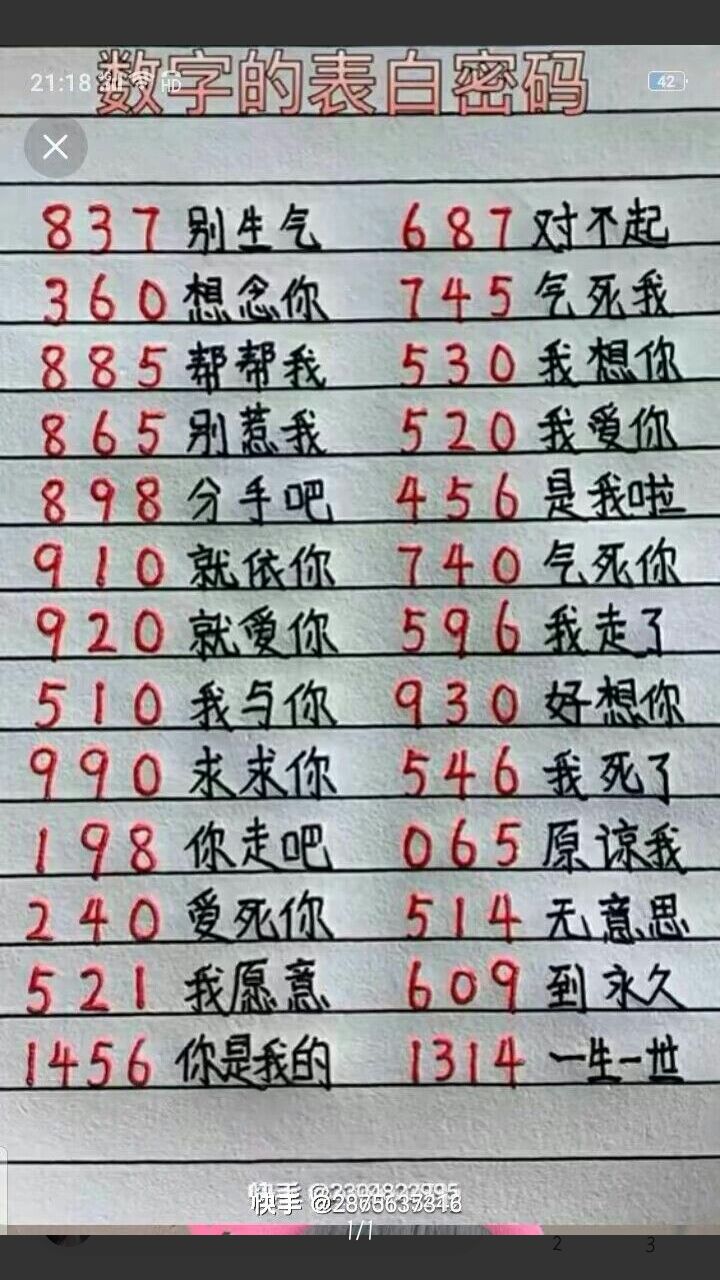 数字的表白密码
21:18 HD 42
837 别生气 687 对不起
360 想念你 745 气死我
885 帮帮我 530 我想你
865 别惹我 520 我爱你
898 分手吧 456 是我啦
910 就依你 740 气死你
920 就爱你 596 我走了
510 我与你 930 好想你
990 求求你 546 我死了
198 你走吧 065 原谅我
240 爱死你 514 无意思
521 我愿意 609 到永久
1456 你是我的 1314 一生一世
快手
快手
1/1
2 3